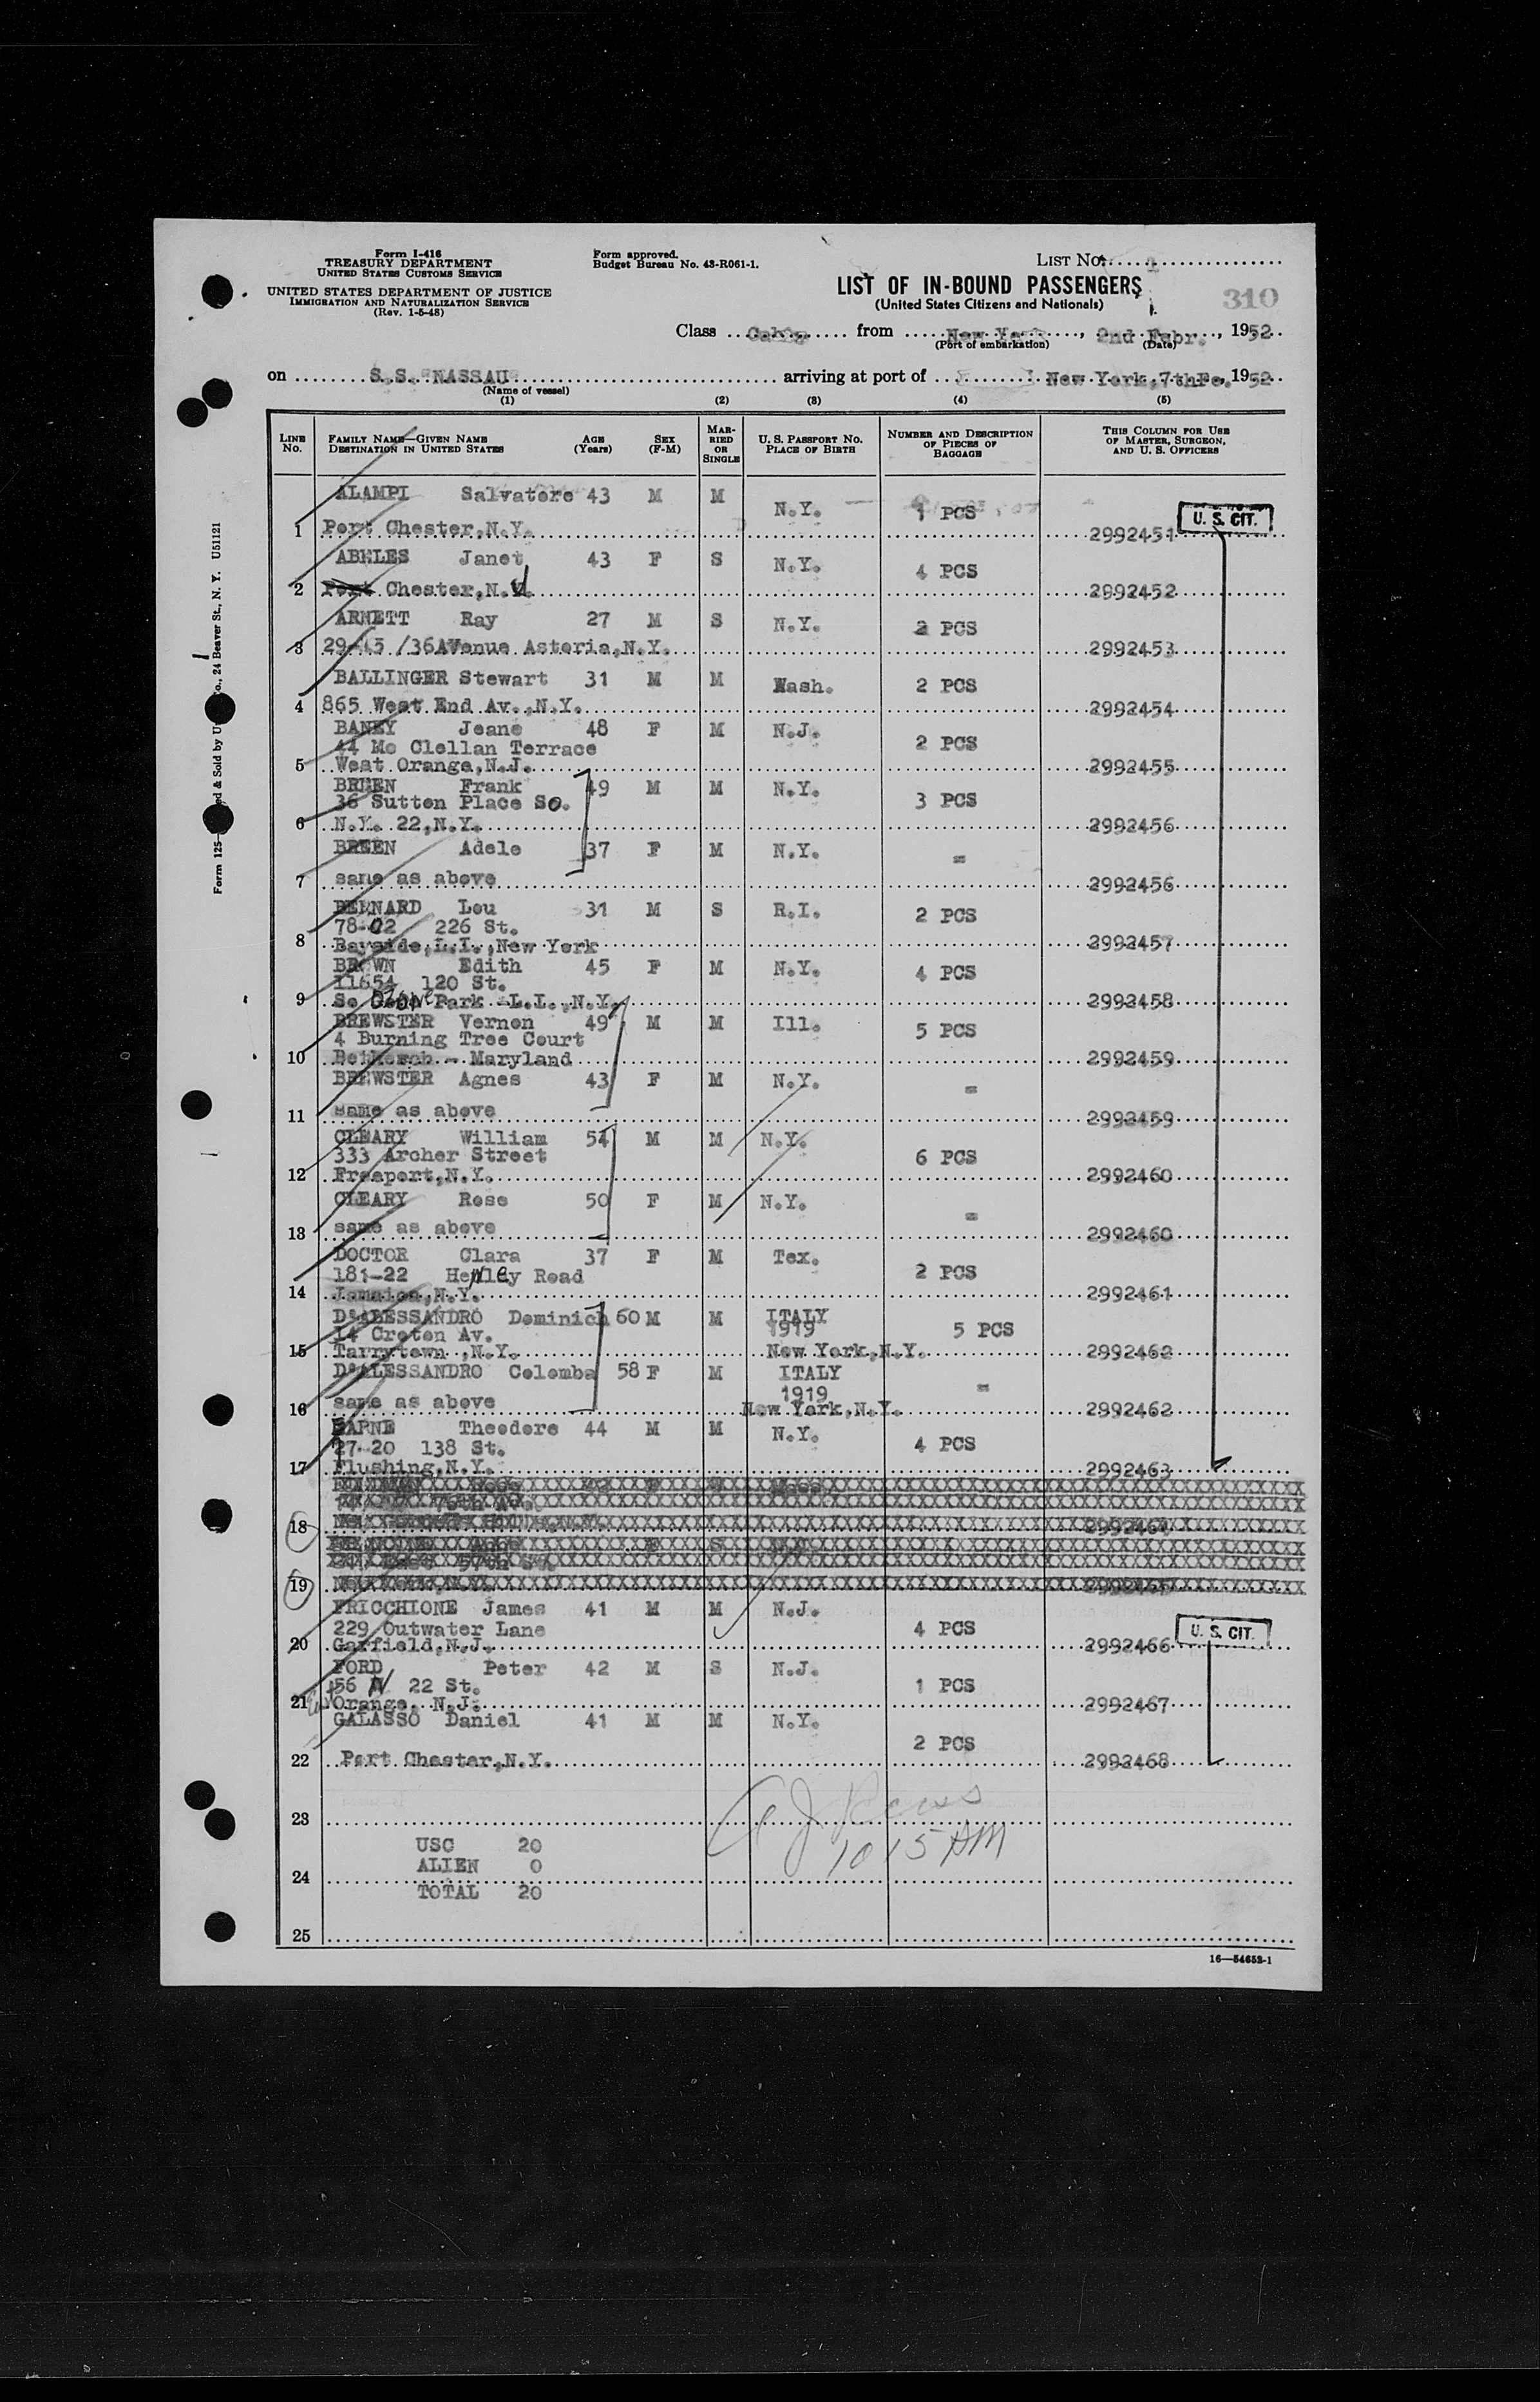 Form I-416
TREASURY DEPARTMENT
UNITED STATES CUSTOMS SERVICE
UNITED STATES DEPARTMENT OF JUSTICE
IMMIGRATION AND NATURALIZATION SERVICE
(Rev. 1-5-48)
Form approved.
Budget Bureau No. 43-R061-1.
LIST NO.
LIST OF IN-BOUND PASSENGERS
(United States Citizens and Nationals)
310
Class Cabin from New York, 2nd Febr., 1952
(Port of embarkation) (Date)
on S.S. "NASSAU" arriving at port of New York, 7th Fe., 1952
(Name of vessel)
(1) (2) (3) (4) (5)
LINE NO. FAMILY NAME—GIVEN NAME DESTINATION IN UNITED STATES AGE (Years) SEX (F-M) MARRIED OR SINGLE U. S. PASSPORT NO. PLACE OF BIRTH NUMBER AND DESCRIPTION OF PIECES OF BAGGAGE THIS COLUMN FOR USE OF MASTER, SURGEON, AND U. S. OFFICERS
ALAMPI Salvatore 43 M M N.Y. 1 PCS U. S. CIT.
1 Port Chester,N.Y. 2992451
ABELES Janet 43 F S N.Y. 4 PCS
2 Port Chester,N. 2992452
ARNETT Ray 27 M S N.Y. 2 PCS
3 29-15 /36AVenue Astoria,N.Y. 2992453
BALLINGER Stewart 31 M M Wash. 2 PCS
4 865 West End Av.,N.Y. 2992454
BANEY Jeane 48 F M N.J.
44 Mc Clellan Terrace 2 PCS
5 West Orange,N.J. 2992455
BREEN Frank 49 M M N.Y.
36 Sutton Place So. 3 PCS
6 N.Y. 22,N.Y. 2992456
BREEN Adele 37 F M N.Y. =
7 same as above 2992456
BERNARD Lou 31 M S R.I. 2 PCS
78-02 226 St.
8 Bayside,L.I.,New York 2992457
BROWN Edith 45 F M N.Y. 4 PCS
11654 120 St.
9 So Ozone Park L.I.,N.Y. 2992458
BREWSTER Vernon 49 M M Ill. 5 PCS
4 Burning Tree Court
10 - Maryland 2992459
BREWSTER Agnes 43 F M N.Y. =
11 same as above 2992459
CLEARY William 54 M M N.Y.
333 Archer Street 6 PCS
12 Freeport,N.Y. 2992460
CLEARY Rose 50 F M N.Y. =
13 same as above 2992460
DOCTOR Clara 37 F M Tex.
181-22 Henley Road 2 PCS
14 Jamaica,N.Y. 2992461
D'ALESSANDRO Dominich 60 M M ITALY
14 Croton Av. 1919 5 PCS
15 Tarrytown ,N.Y. New York,N.Y. 2992462
D'ALESSANDRO Colomba 58 F M ITALY
1919 =
16 same as above New York,N.Y. 2992462
EARNE Theodore 44 M M N.Y.
27-20 138 St. 4 PCS
17 Flushing,N.Y. 2992463
18 2992464
19 2992465
FRICCHIONE James 41 M M N.J.
229 Outwater Lane 4 PCS U. S. CIT.
20 Garfield,N.J. 2992466
FORD Peter 42 M S N.J.
56 N 22 St. 1 PCS
21 Orange, N.J. 2992467
GALASSO Daniel 41 M M N.Y.
2 PCS
22 Port Chester,N.Y. 2992468
23
10 15 AM
USC 20
ALIEN 0
24
TOTAL 20
25
16—54652-1